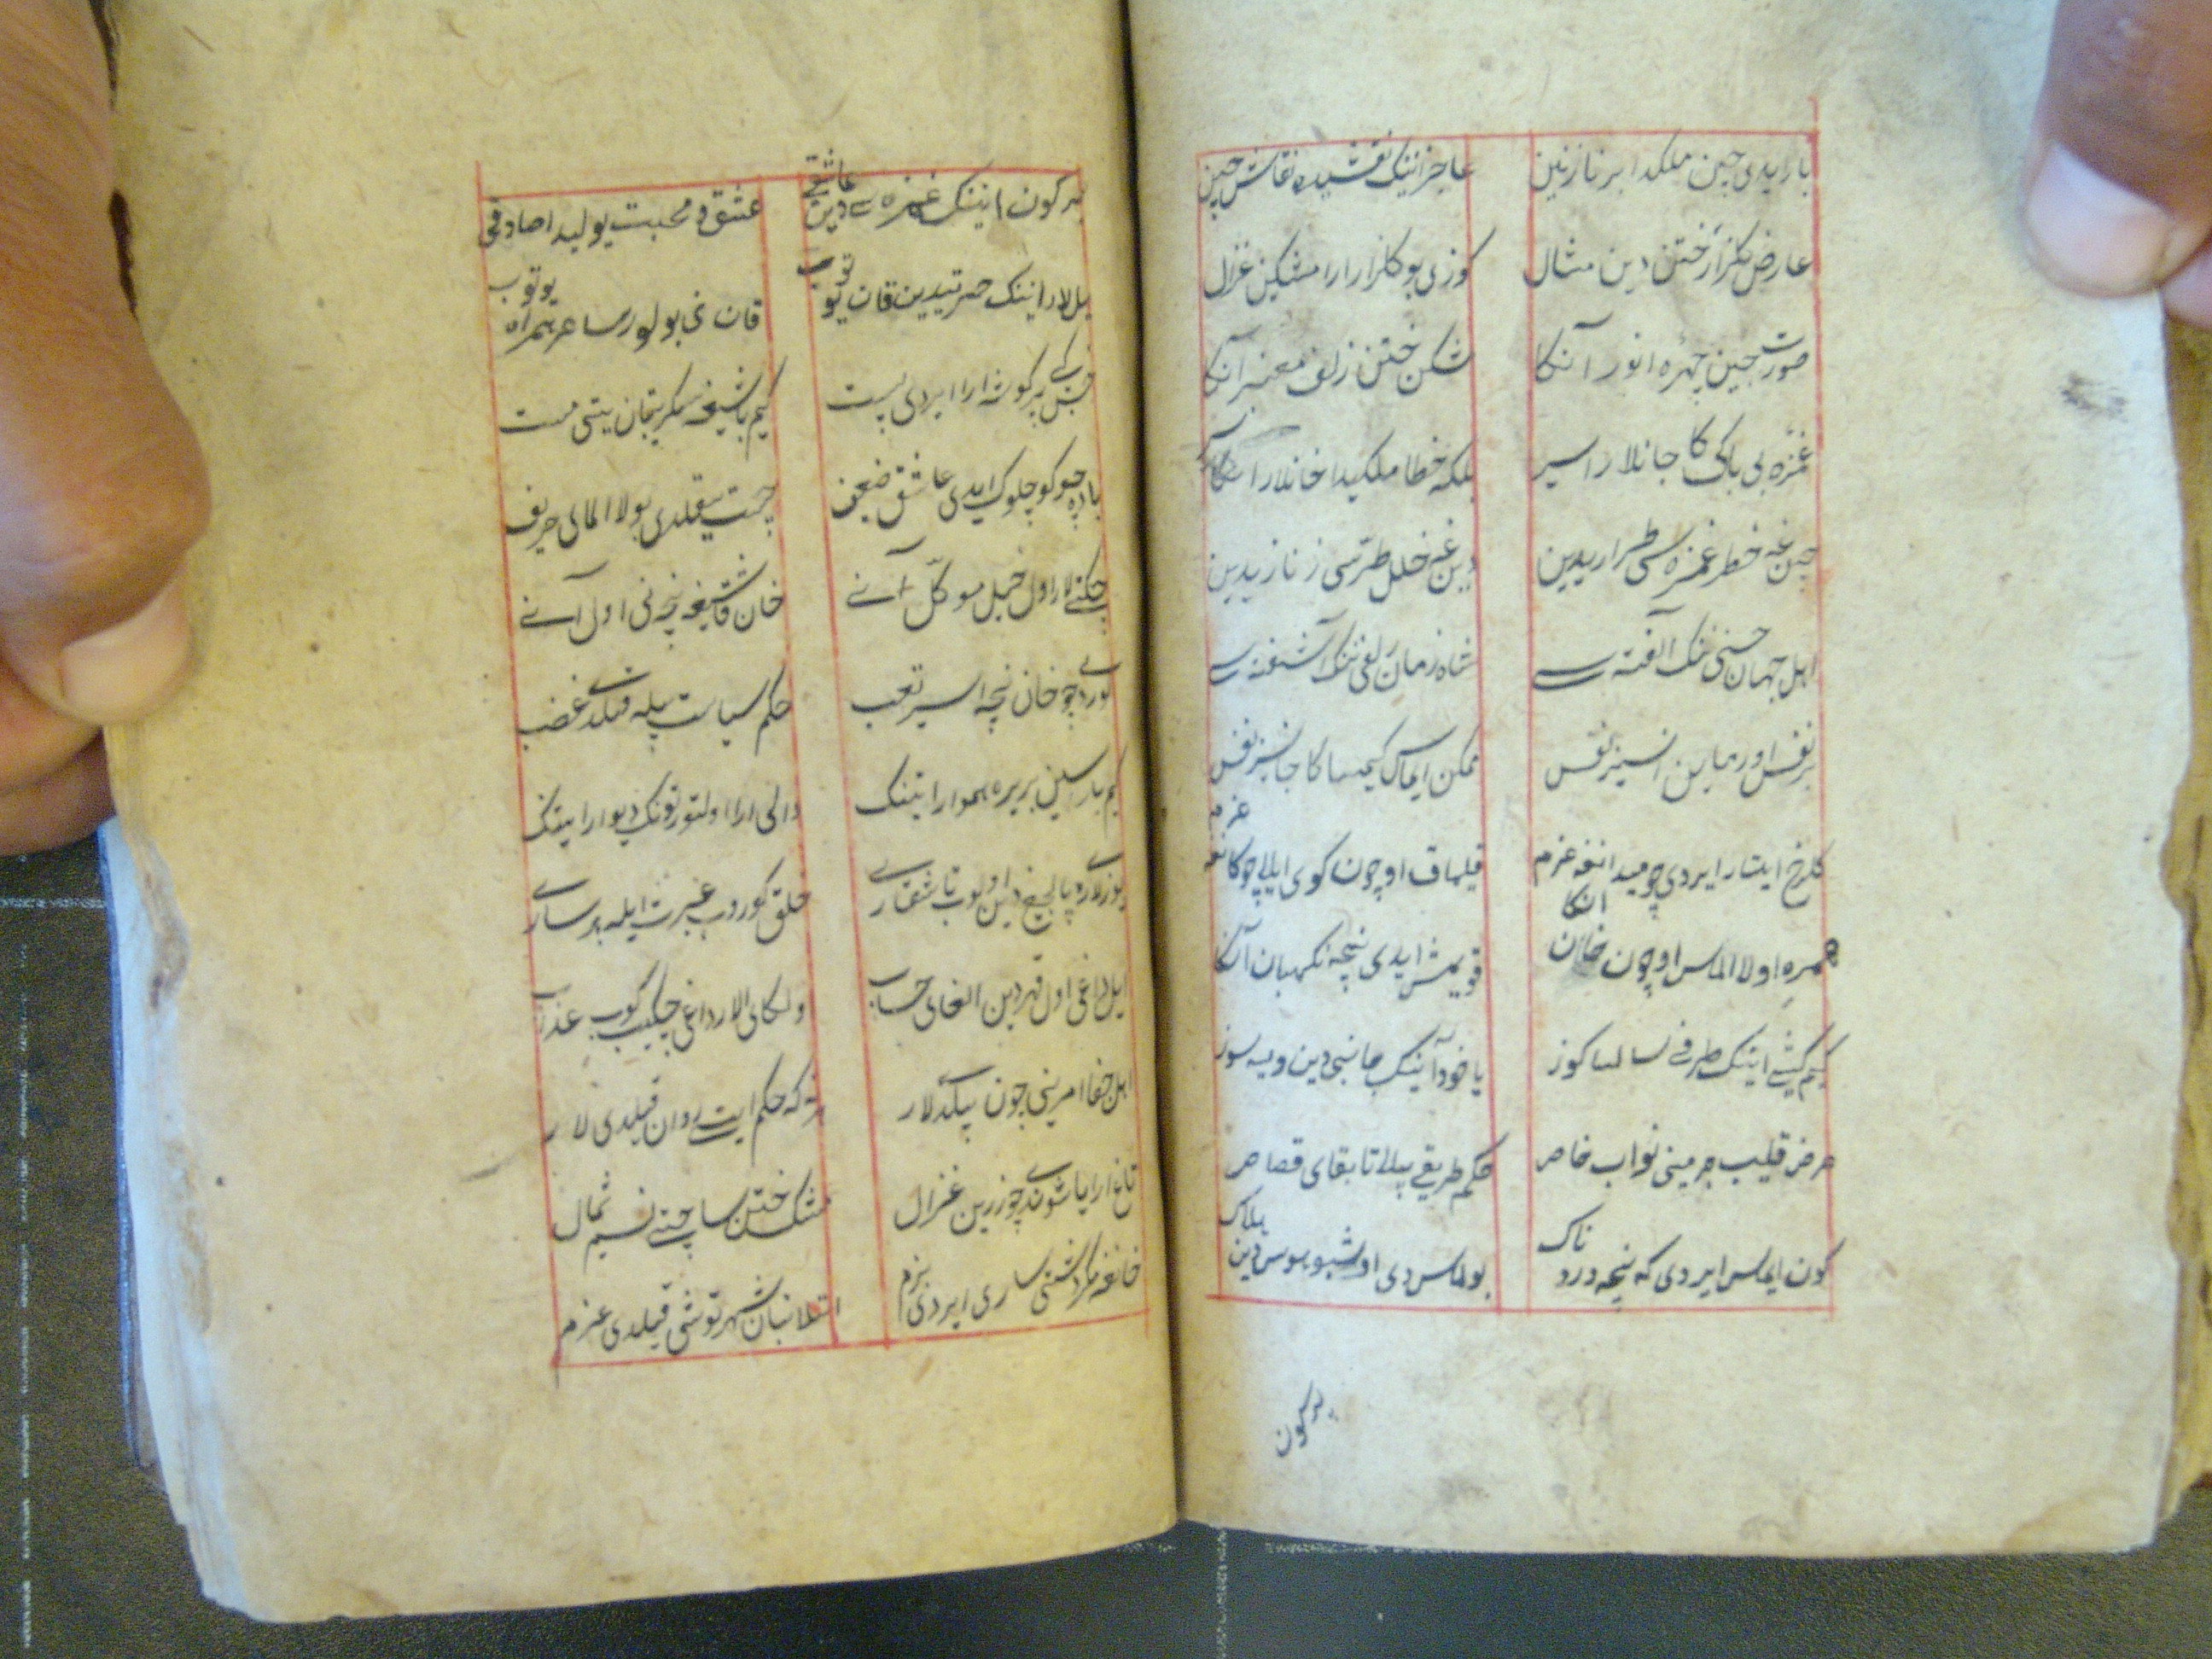 بار ایدی چین ملکیدا بر نازنین
عاجز انینک نقشیده نقاش چین
عارض کلزار ختن دین مثال
کوزی بو کلزار ارا مشکین غزال
صورت چین چهرهٔ انور آنکا
شکن ختن زلف معنبر آنکا
غمزهٔ بی باکی کا جانلار اسیر
بلکه خطا ملکیدا خانلار اسیر
چین غه خطر غمزه سی طراریدین
دین غه خلل طره سی زناریدین
اهل جهان حسنی ننک آلفته سی
شاه زمان زلفی ننک آشفته سی
بر نفس اور ماین انسیز نفس
ممکن ایماس کیمسا کا جانسیز نفس
کلرخ ایتار ایردی چو میدانغه عزم
قیلماق اوچون کوی ایلی چوکانغه عزم
همره اولا الماس اوچون خان انکا
قویمش ایدی نیچه نکهبان آنکا
کیم کیشی اینک طرفی سالسا کوز
یا خود آنینک جانبی دین دیسه سوز
عرض قیلیب جرمینی نواب خاص
حکم طریقی بیله تا بقای قصاص
کون ایماس ایردی که نیچه دردناک
بولماس دی اوشبو هوس دین هلاک
بر کون
بر کون انینک غمزه سی دین عاشقی
عشق و محبت یولیدا صادقی
ییل لار انینک حسرتیدین قان یوتوب
قان نی بولور ساغر همراه یوتوب
کیم باشیغه سکریتان یتی مست
باده چو کوچلوک ایدی عاشق ضعیف
چست ییقلدی بولا المای حریف
چیکتی لار اول خیل موکل آنی
خان قاشیغه نیچه نی اول آنی
سوردی چو خان نیچه اسیر تعب
حکم سیاست بیله قیلدی غضب
کیم بارسینی بریره هموار ایتنک
دالی ارا اولتورتونک دیوار ایتنک
یوزلاری بالچیغ دین اولوب تاشقاری
خلق کوروب عبرت ایله هر ساری
ایل داغی اول قهردین الغای حساب
ولکای الار داغی چیکیب کوب عذاب
اهل جفا امرینی چون بیلدیلار
هر نه که حکم ایتی روان قیلدی لار
تاغ ارا یاشوندی چو زرین غزال
مشک ختن ساچتی نسیم شمال
خانغه مکر کشتی ساری ایردی بزم
اتلانیبان شهر توشی قیلدی عزم